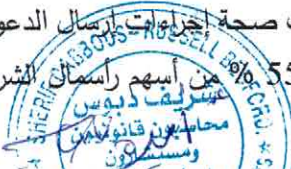 صحة إجراءات إرسال الدعو
55 % من أسهم رأسمال الشر
SHERIF DABBOUS - RUSSELL BEDFORD
شريف دبوس
محاسبون قانونيون
ومستشارون